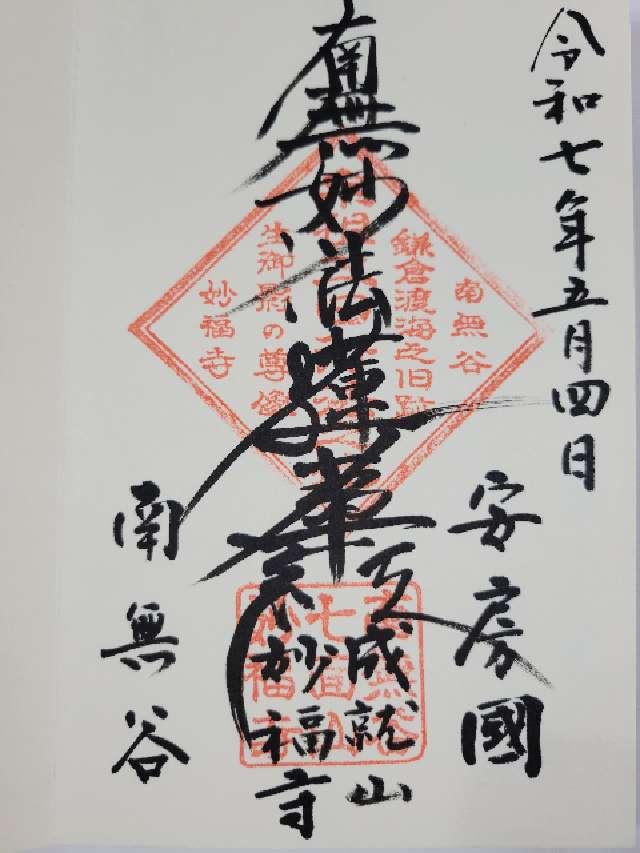 令和七年五月四日
安房國
南無妙法蓮華経
成就山
妙福寺
南無谷
南無谷
鎌倉渡海之旧跡
生御影の尊像
妙福寺